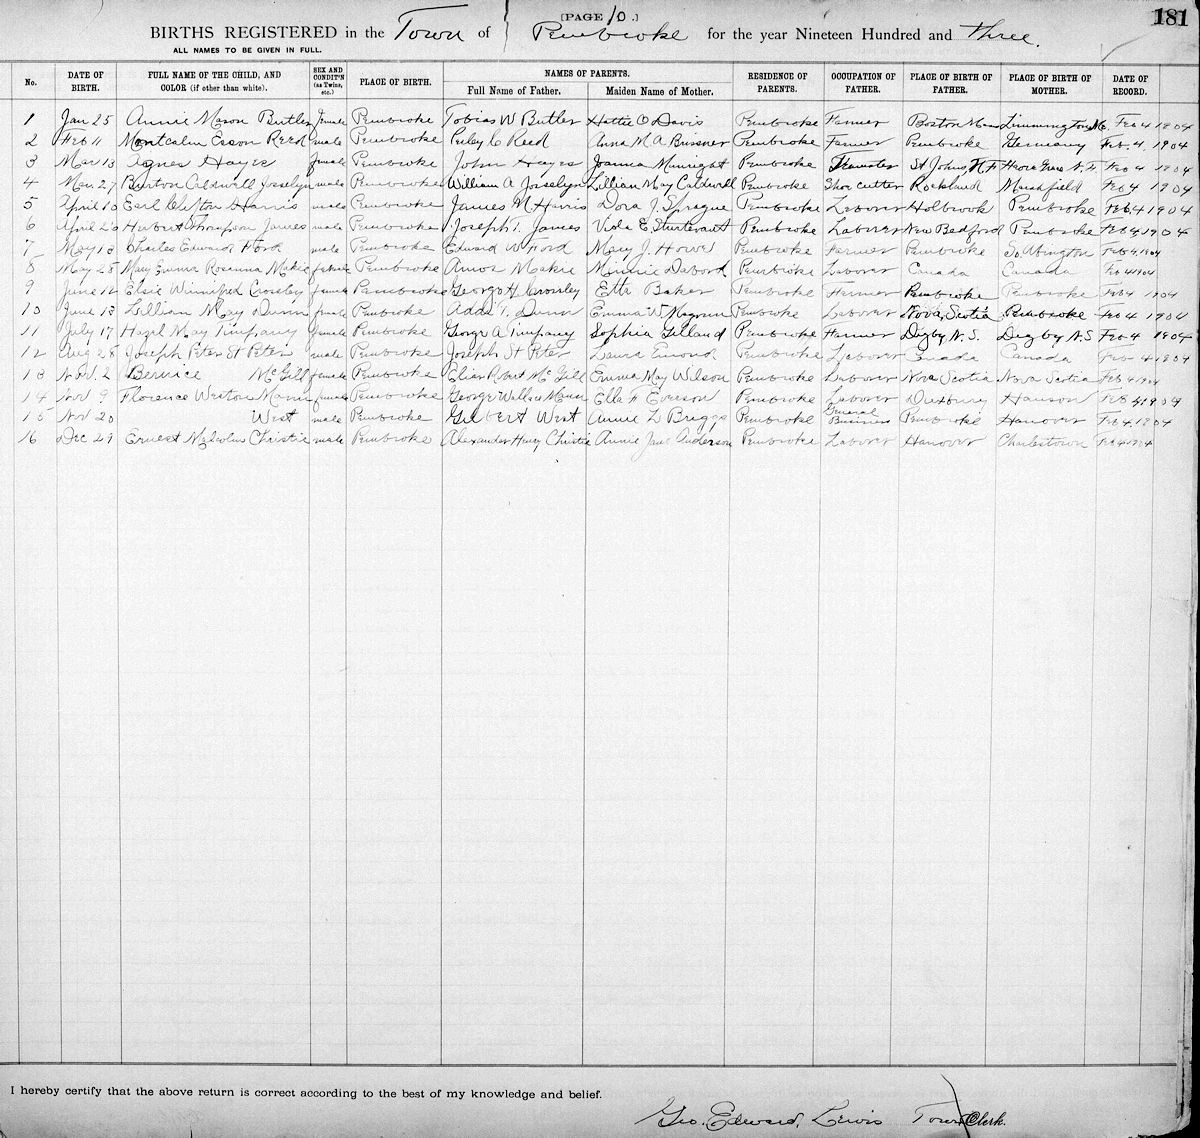 [PAGE 10.]
181
BIRTHS REGISTERED in the Town of Pembroke for the year Nineteen Hundred and Three.
ALL NAMES TO BE GIVEN IN FULL.
No. DATE OF BIRTH. FULL NAME OF THE CHILD, AND COLOR (if other than white). SEX AND CONDIT'N (as Twins, etc.) PLACE OF BIRTH. NAMES OF PARENTS. Full Name of Father. Maiden Name of Mother. RESIDENCE OF PARENTS. OCCUPATION OF FATHER. PLACE OF BIRTH OF FATHER. PLACE OF BIRTH OF MOTHER. DATE OF RECORD.
1 Jan 25 Annie Mason Butler female Pembroke Tobias W Butler Hattie O Davis Pembroke Farmer Boston Mass Limmington Me. Feb 4 1904
2 Feb 11 Montcalm Esson Reed male Pembroke C Reed Anna M A Pembroke Farmer Pembroke Germany Feb. 4. 1904
3 Mar 13 Agnes Hayes female Pembroke John Hayes Joanna Pembroke Teamster St Johns N. F. N. F. Feb 4 1904
4 Mar. 27 Burton Caldwell Josselyn male Pembroke William A Josselyn Lillian May Caldwell Pembroke Shoe cutter Rockland Marshfield Feb 4 1904
5 April 10 Earl Harris male Pembroke James M Harris Dora J Sprague Pembroke Laborer Holbrook Pembroke Feb 4 1904
6 April 20 Herbert Thompson James male Pembroke Joseph T. James Viola E. Sturtevant Pembroke Laborer New Bedford Pembroke Feb 4 1904
7 May 13 Charles Edward Ford male Pembroke Edward W Ford Mary J. Howes Pembroke Farmer Pembroke So. Abington Feb 4 1904
8 May 28 Mary Emma Rosanna Makie female Pembroke Amos Makie Minnie Pembroke Laborer Canada Canada Feb 4 1904
9 June 12 Elsie Winnifred Crossley female Pembroke George H. Crossley Etta Baker Pembroke Farmer Pembroke Pembroke Feb 4 1904
10 June 13 Lillian May Dunn female Pembroke T. Dunn Emma Pembroke Laborer Nova Scotia Pembroke Feb 4 1904
11 July 17 Hazel May Timpany female Pembroke George A Timpany Sophia Gilland Pembroke Farmer Digby N. S. Digby N. S Feb 4 1904
12 Aug 28 Joseph Peter St Peter male Pembroke Joseph St Peter Laura Emond Pembroke Laborer Canada Canada Feb 4 1904
13 Nov. 2 Bernice McGill female Pembroke Elias Robert McGill Emma May Wilson Pembroke Laborer Nova Scotia Nova Scotia Feb 4 1904
14 Nov 9 Florence Weston Mann female Pembroke George Wallace Mann Ella F Everson Pembroke Laborer Duxbury Hanson Feb 4 1904
15 Nov 20 West male Pembroke Gilbert West Annie L Briggs Pembroke General Business Pembroke Hanover Feb 4. 1904
16 Dec 29 Ernest Malcolm Christie male Pembroke Alexander Henry Christie Annie Jane Anderson Pembroke Laborer Hanover Charlestown Feb 4 1904
I hereby certify that the above return is correct according to the best of my knowledge and belief.
Geo. Edward Lewis Town Clerk.